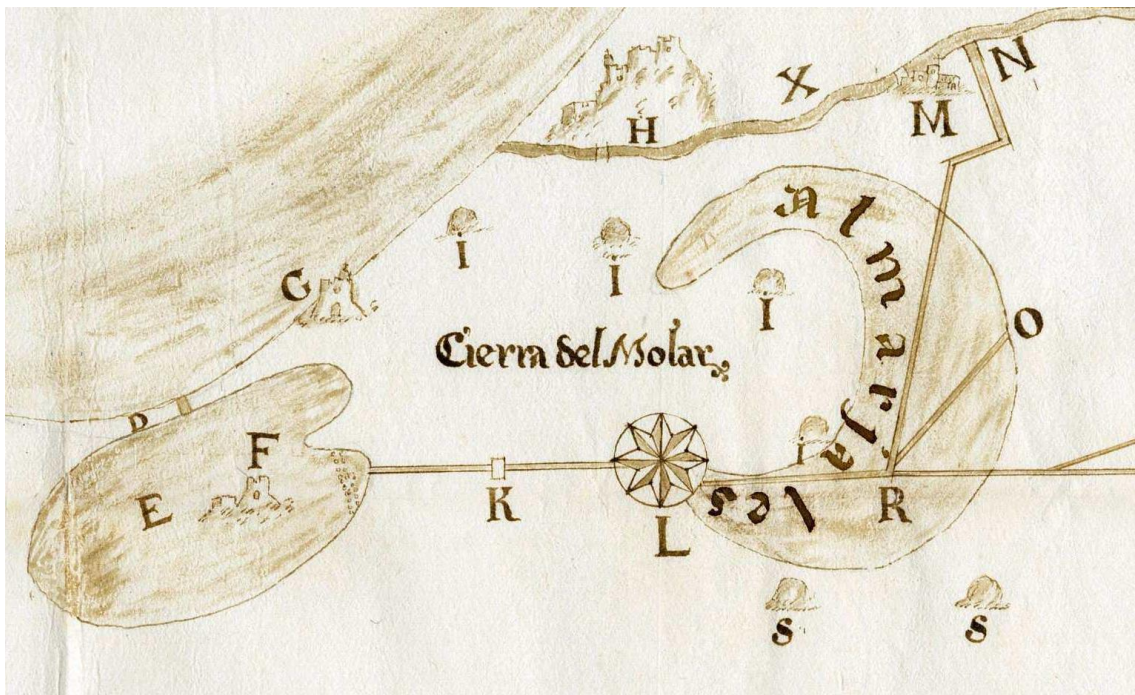 X
N
M
H
A l m a r j a l e s
I
I
I
G
O
Cierra del Molar
D
F
i
E
K
L
R
S
S